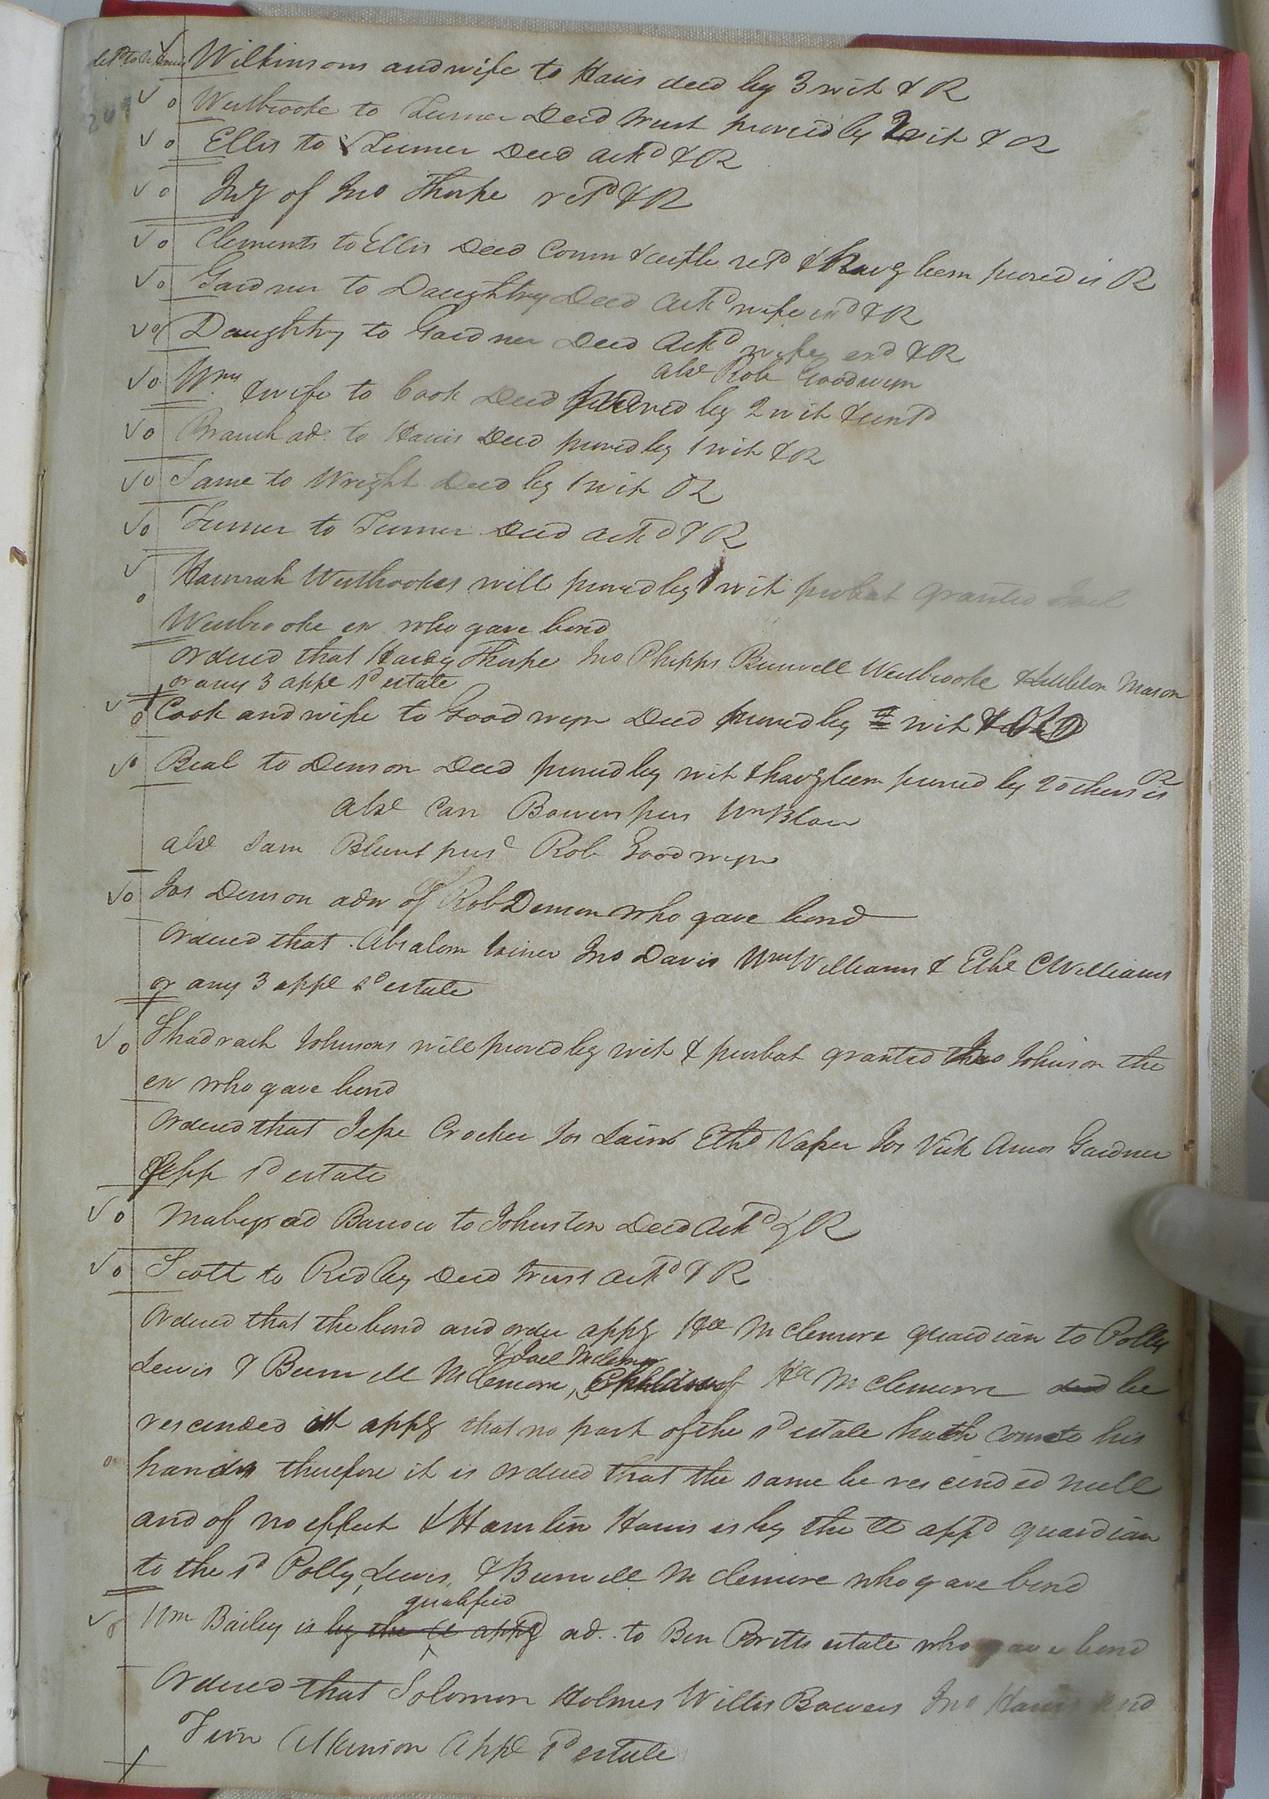 Wilkinsons and wife to Haris deed by 3 wit & R
Westbrooke to Turner Deed trust proved by 2 wit & R
Ellis to Turner Deed ackd & R
Inv of Jno Thorpe retd & R
Clements to Ellis Deed Comn & certfe retd & havg been proved is R
Gardner to Daughtry Deed Ackd wife exd & R
Daughtry to Gardner Deed Ackd wife exd & R
abse Rob Goodwyn
Wms & wife to Cook Deed proved by 2 wit & contd
Branch ad. to Haris Deed proved by 1 wit & R
Same to Wright Deed by 1 wit R
Turner to Turner Deed ackd & R
Hannah Westbrookes will proved by 1 wit probat granted
Westbrooke ex who gave bond
Ordered that Hardy Thorpe Jno Phipps Burwell Westbrooke & Littleton Mason
or any 3 appe sd estate
Cook and wife to Goodwyn Deed proved by wit
Beal to Denson Deed proved by wit & havg been proved by 2 others is R
abse Carr Bowers pres Wm Blow
abse Sam Blunt prest Rob Goodwyn
Jos Denson adm of Rob Denson who gave bond
Ordered that Absalom Joiner Jno Davis Wm Williams & Ethe C Williams
or any 3 appe sd estate
Shadrach Johnsons will proved by wit & probat granted Jno Johnson the
ex who gave bond
Ordered that Jesse Crocker Jos Ethd Vaser Jos Vick Amos Gardner
App sd estate
Mabrys ad Barrow to Johnston Deed Ackd & R
Scott to Ridley Deed trust Ackd & R
Ordered that the bond and order appg McLemore guardian to Polly
& Joel McLemore
Lewis & Burwell McLemore, Children of McLemore decd be
rescinded it appg that no part of the sd estate hath come to his
hands therefore it is ordered that the same be rescinded null
and of no effect & Hamlin Haris is by the Ct appd guardian
to the sd Polly, Lewis, & Burwell McLemore who gave bond
qualified
Wm Bailey is by the Ct appg ad. to Ben Britts estate who gave bond
Ordered that Solomon Holmes Willis Bowers Jno Haris and
Tim Atkinson Appe sd estate